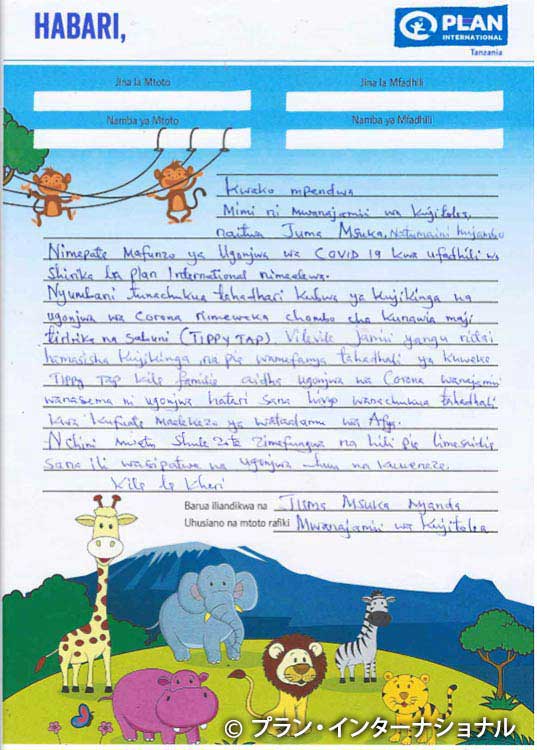 HABARI,
PLAN
INTERNATIONAL
Tanzania
Jina la Mtoto
Jina la Mfadhili
Namba ya Mtoto
Namba ya Mfadhili
Kwako mpendwa
Mimi ni Mwanajamii wa Kujitolea,
naitwa Juma Msuka, Natumaini hujambo
Nimepate Mafunzo ya Ugonjwa wa COVID 19 kwa ufadhili wa
shirika la plan International nimeelewa.
Nyumbani tunachukua tahadhari kubwa ya kujikinga na
ugonjwa wa corona nimeweka chombo cha kunawia maji
tiririka na sabuni (TIPPY TAP). Vilevile Jamii yangu
hamasisha kujikinga na pia wamefanya tahadhali ya kuweka
TIPPY TAP kila familia aidha ugonjwa wa Corona wanajamii
wanasema ni ugonjwa hatari sana hivyo wanachukua tahadhali
kwa kufuata maelekezo ya wataalamu wa Afya.
Nchini shule zote zimefungwa na hili pia limesaidia
sana ili wasipatwe na ugonjwa huu na kuueneza.
Kila la kheri
Barua iliandikwa na Juma Msuka Nyanda
Uhusiano na mtoto rafiki Mwanajamii wa Kujitolea
© プラン・インターナショナル